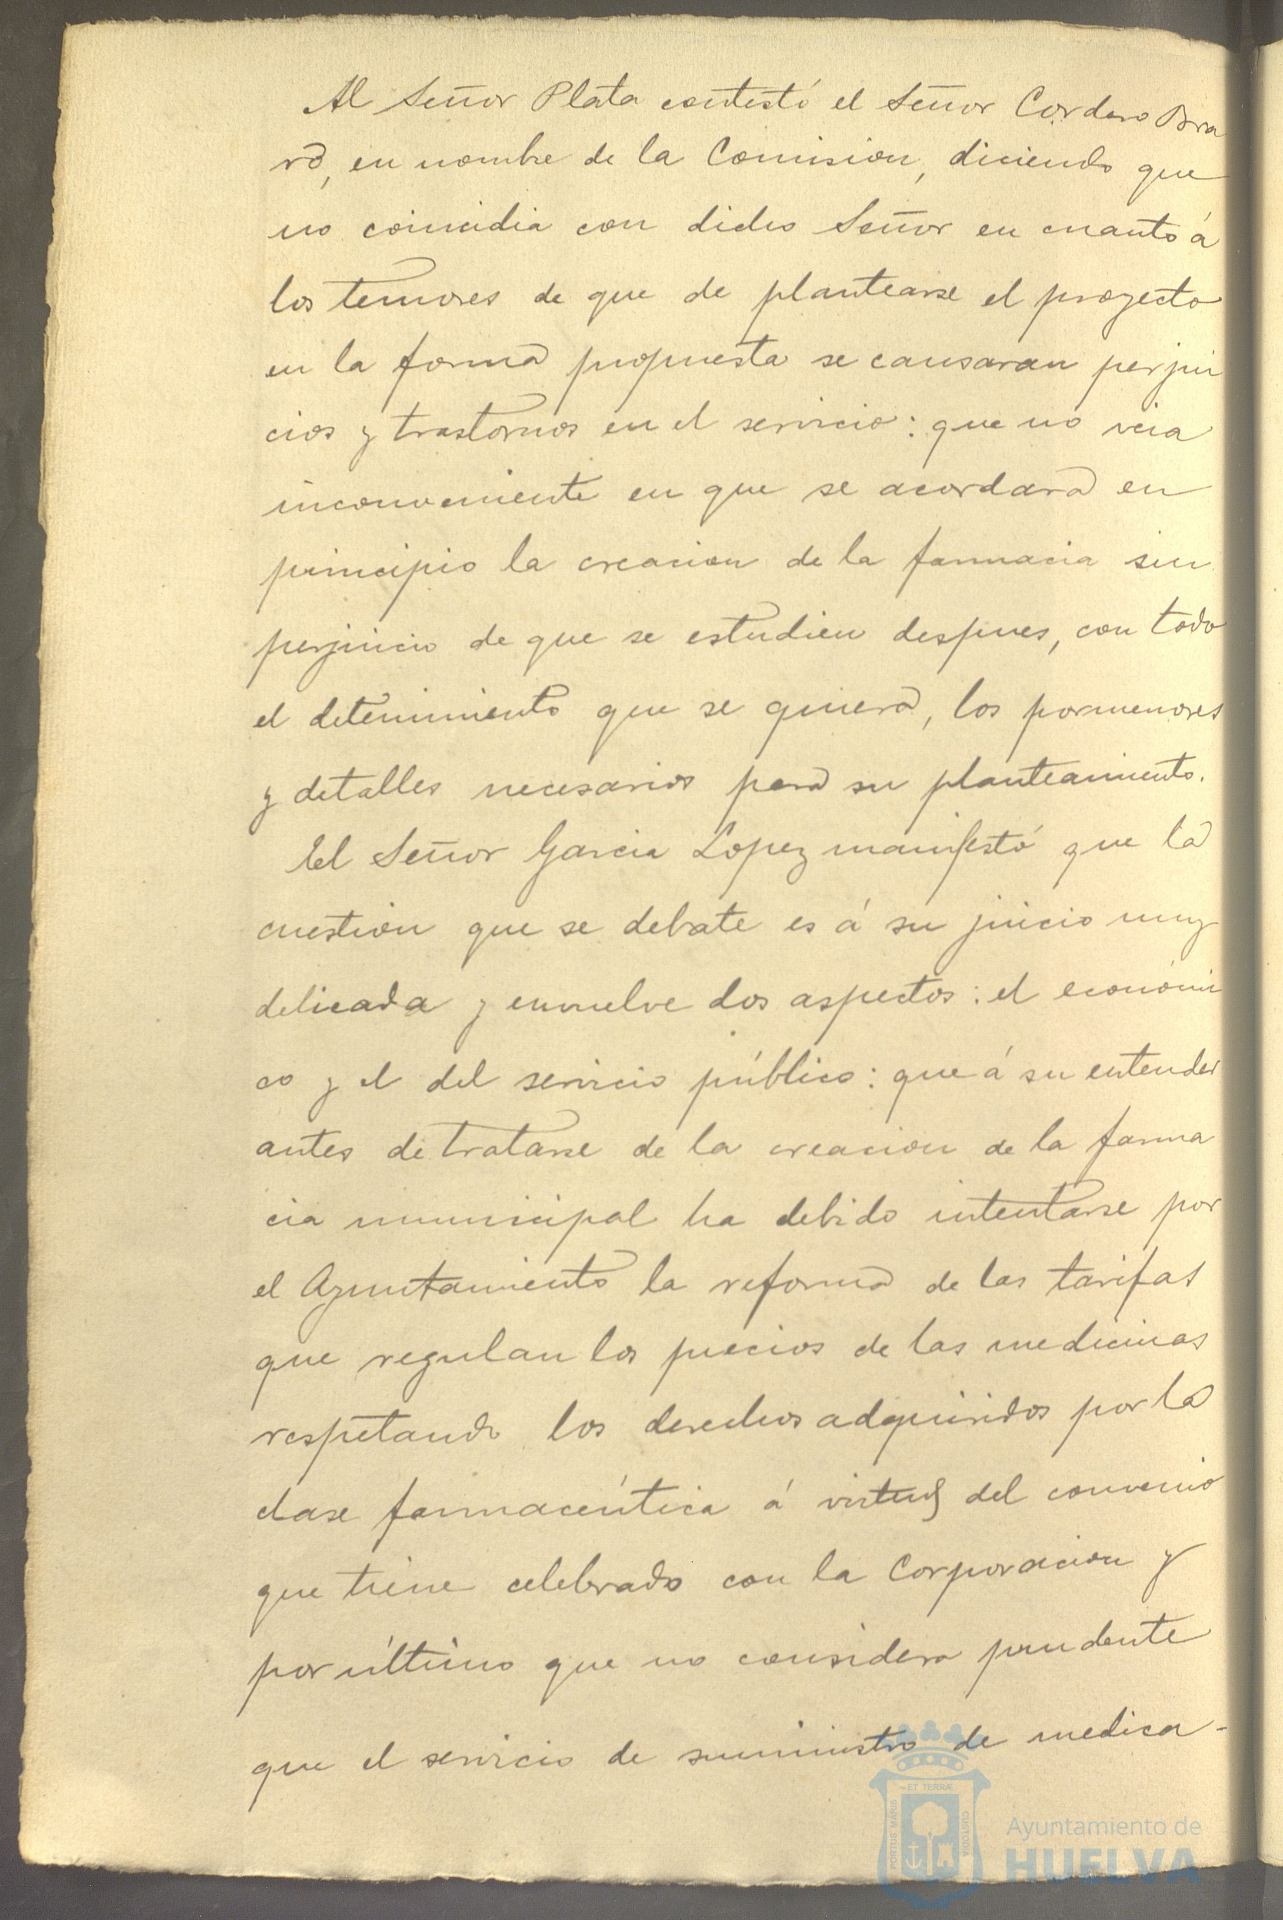 Al Señor Plata contestó el Señor Cordero Bra
vo, en nombre de la Comision, diciendo que
no coincidia con dicho Señor en cuanto á
los temores de que de plantearse el proyecto
en la forma propuesta se causaran perjui
cios y trastornos en el servicio: que no veia
inconveniente en que se acordara en
principio la creacion de la farmacia sin
perjuicio de que se estudien despues, con todo
el detenimiento que se quiera, los pormenores
y detalles necesarios para su planteamiento.
El Señor Garcia Lopez manifestó que la
cuestion que se debate es á su juicio muy
delicada y envuelve dos aspectos: el económi
co y el del servicio público: que á su entender
antes de tratarse de la creacion de la farma
cia municipal ha debido intentarse por
el Ayuntamiento la reforma de las tarifas
que regulan los precios de las medicinas
respetando los derechos adquiridos por la
clase farmacéutica á virtud del convenio
que tiene celebrado con la Corporacion y
por último que no considera prudente
que el servicio de suministro de medica-
ET TERRÆ
PORTUS MARIS
CUSTODIA
Ayuntamiento de
HUELVA